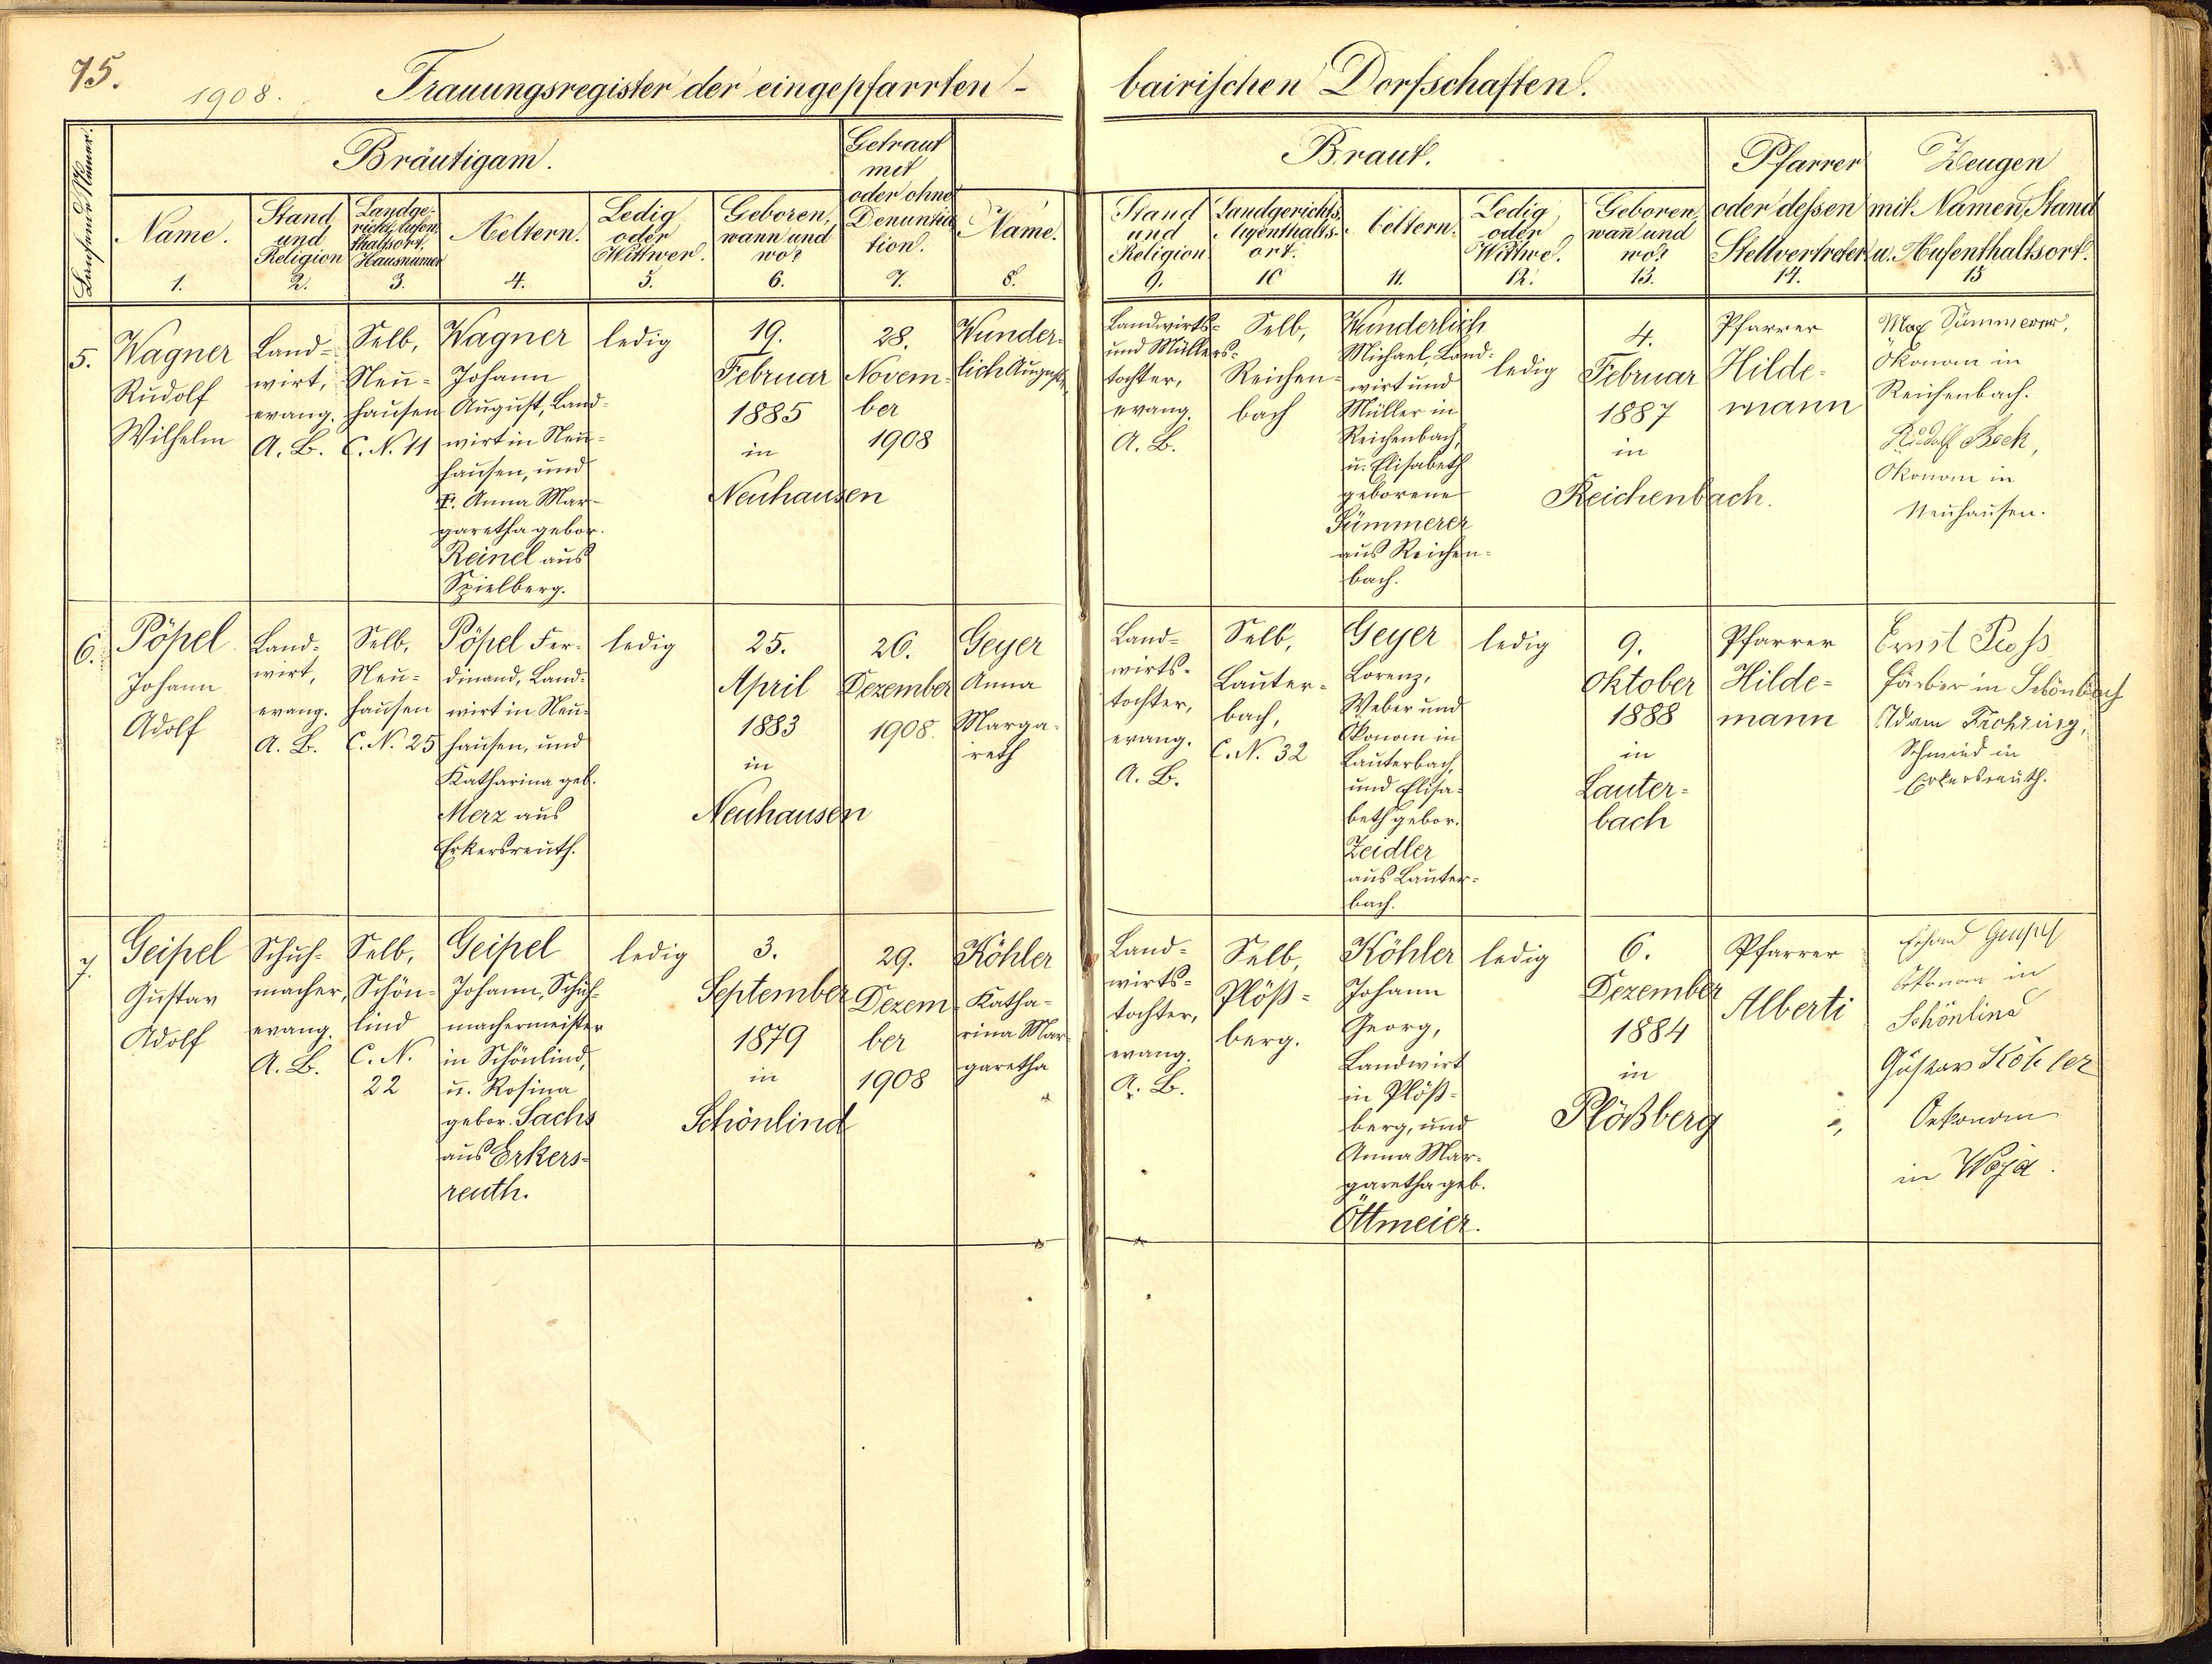 75.
1908.
Trauungsregister der eingepfarrten-
bairischen Dorfschaften.
Laufende Numer.
Bräutigam.
Getraut
mit
oder ohne
Denuntia
tion.
7.
Name.
1.
Stand
und
Religion
2.
Landge-
richt, Aufen-
thaltsort.
Hausnumer
3.
Aeltern.
4.
Ledig
oder
Wittwer.
5.
Geboren,
wann und
wo?
6.
Name.
8.
Braut.
Stand
und
Religion
9.
Landgerichts,
Aufenthalts-
ort.
10
Aeltern.
11.
Ledig
oder
Wittwe.
12.
Geboren,
wañ und
wo?
13.
Pfarrer
oder dessen
Stellvertreter
14.
Zeugen
mit Namen, Stand
u. Aufenthaltsort.
15
5.
Wagner
Rudolf
Wilhelm
Land-
wirt,
evang.
A. B.
Selb,
Neu-
hausen
C. N. 11
Wagner
Johann
August, Land-
wirt in Neu-
hausen, und
Anna Mar-
garetha gebor.
Reinel aus
Spielberg.
ledig
19.
Februar
1885
in
Neuhausen
28.
Novem-
ber
1908
Wunder-
lich Auguste
Landwirts-
und Müllers-
tochter,
evang.
A. B.
Selb,
Reichen-
bach
Wunderlich
Michael, Land-
wirt und
Müller in
Reichenbach,
u. Elisabeth
geborene
Sümmerer
aus Reichen-
bach.
ledig
4.
Februar
1887
in
Reichenbach.
Pfarrer
Hilde-
mann
Max Sümmerer,
Ökonom in
Reichenbach.
Rudolf Beck,
Ökonom in
Neuhausen.
6.
Pöpel
Johann
Adolf
Land-
wirt,
evang.
A. B.
Selb,
Neu-
hausen
C. N. 25
Pöpel Fer-
dinand, Land-
wirt in Neu-
hausen, und
Katharina geb.
Merz aus
Erkersreuth.
ledig
25.
April
1883
in
Neuhausen
26.
Dezember
1908.
Geyer
Anna
Marga-
reth
Land-
wirts-
tochter,
evang.
A. B.
Selb,
Lauter-
bach,
C. N. 32
Geyer
Lorenz,
Weber und
Ökonom in
Lauterbach,
und Elisa-
beth gebor.
Zeidler
aus Lauter-
bach.
ledig
9.
Oktober
1888
in
Lauter-
bach
Pfarrer
Hilde-
mann
Ernst Ploss
Färber in Schönbach
Adam
Schmied in
Erkersreuth.
7.
Geipel
Gustav
Adolf
Schuh-
macher,
evang.
A. B.
Selb,
Schön-
lind
C. N.
22
Geipel
Johann, Schuh-
machermeister
in Schönlind,
u. Rosina
gebor. Sachs
aus Erkers-
reuth.
ledig
3.
September
1879
in
Schönlind
29.
Dezem
ber
1908
Köhler
Katha-
rina Mar
garetha
Land-
wirts-
tochter,
evang.
A. B.
Selb,
Plöß-
berg.
Köhler
Johann
Georg,
Landwirt
in Plöß-
berg, und
Anna Mar-
garetha geb.
Öttmeier.
ledig
6.
Dezember
1884
in
Plößberg
Pfarrer
Alberti
Erhard Geipel
Oekonom in
Schönlind
Gustav Köhler
Oekonom
in Woja.